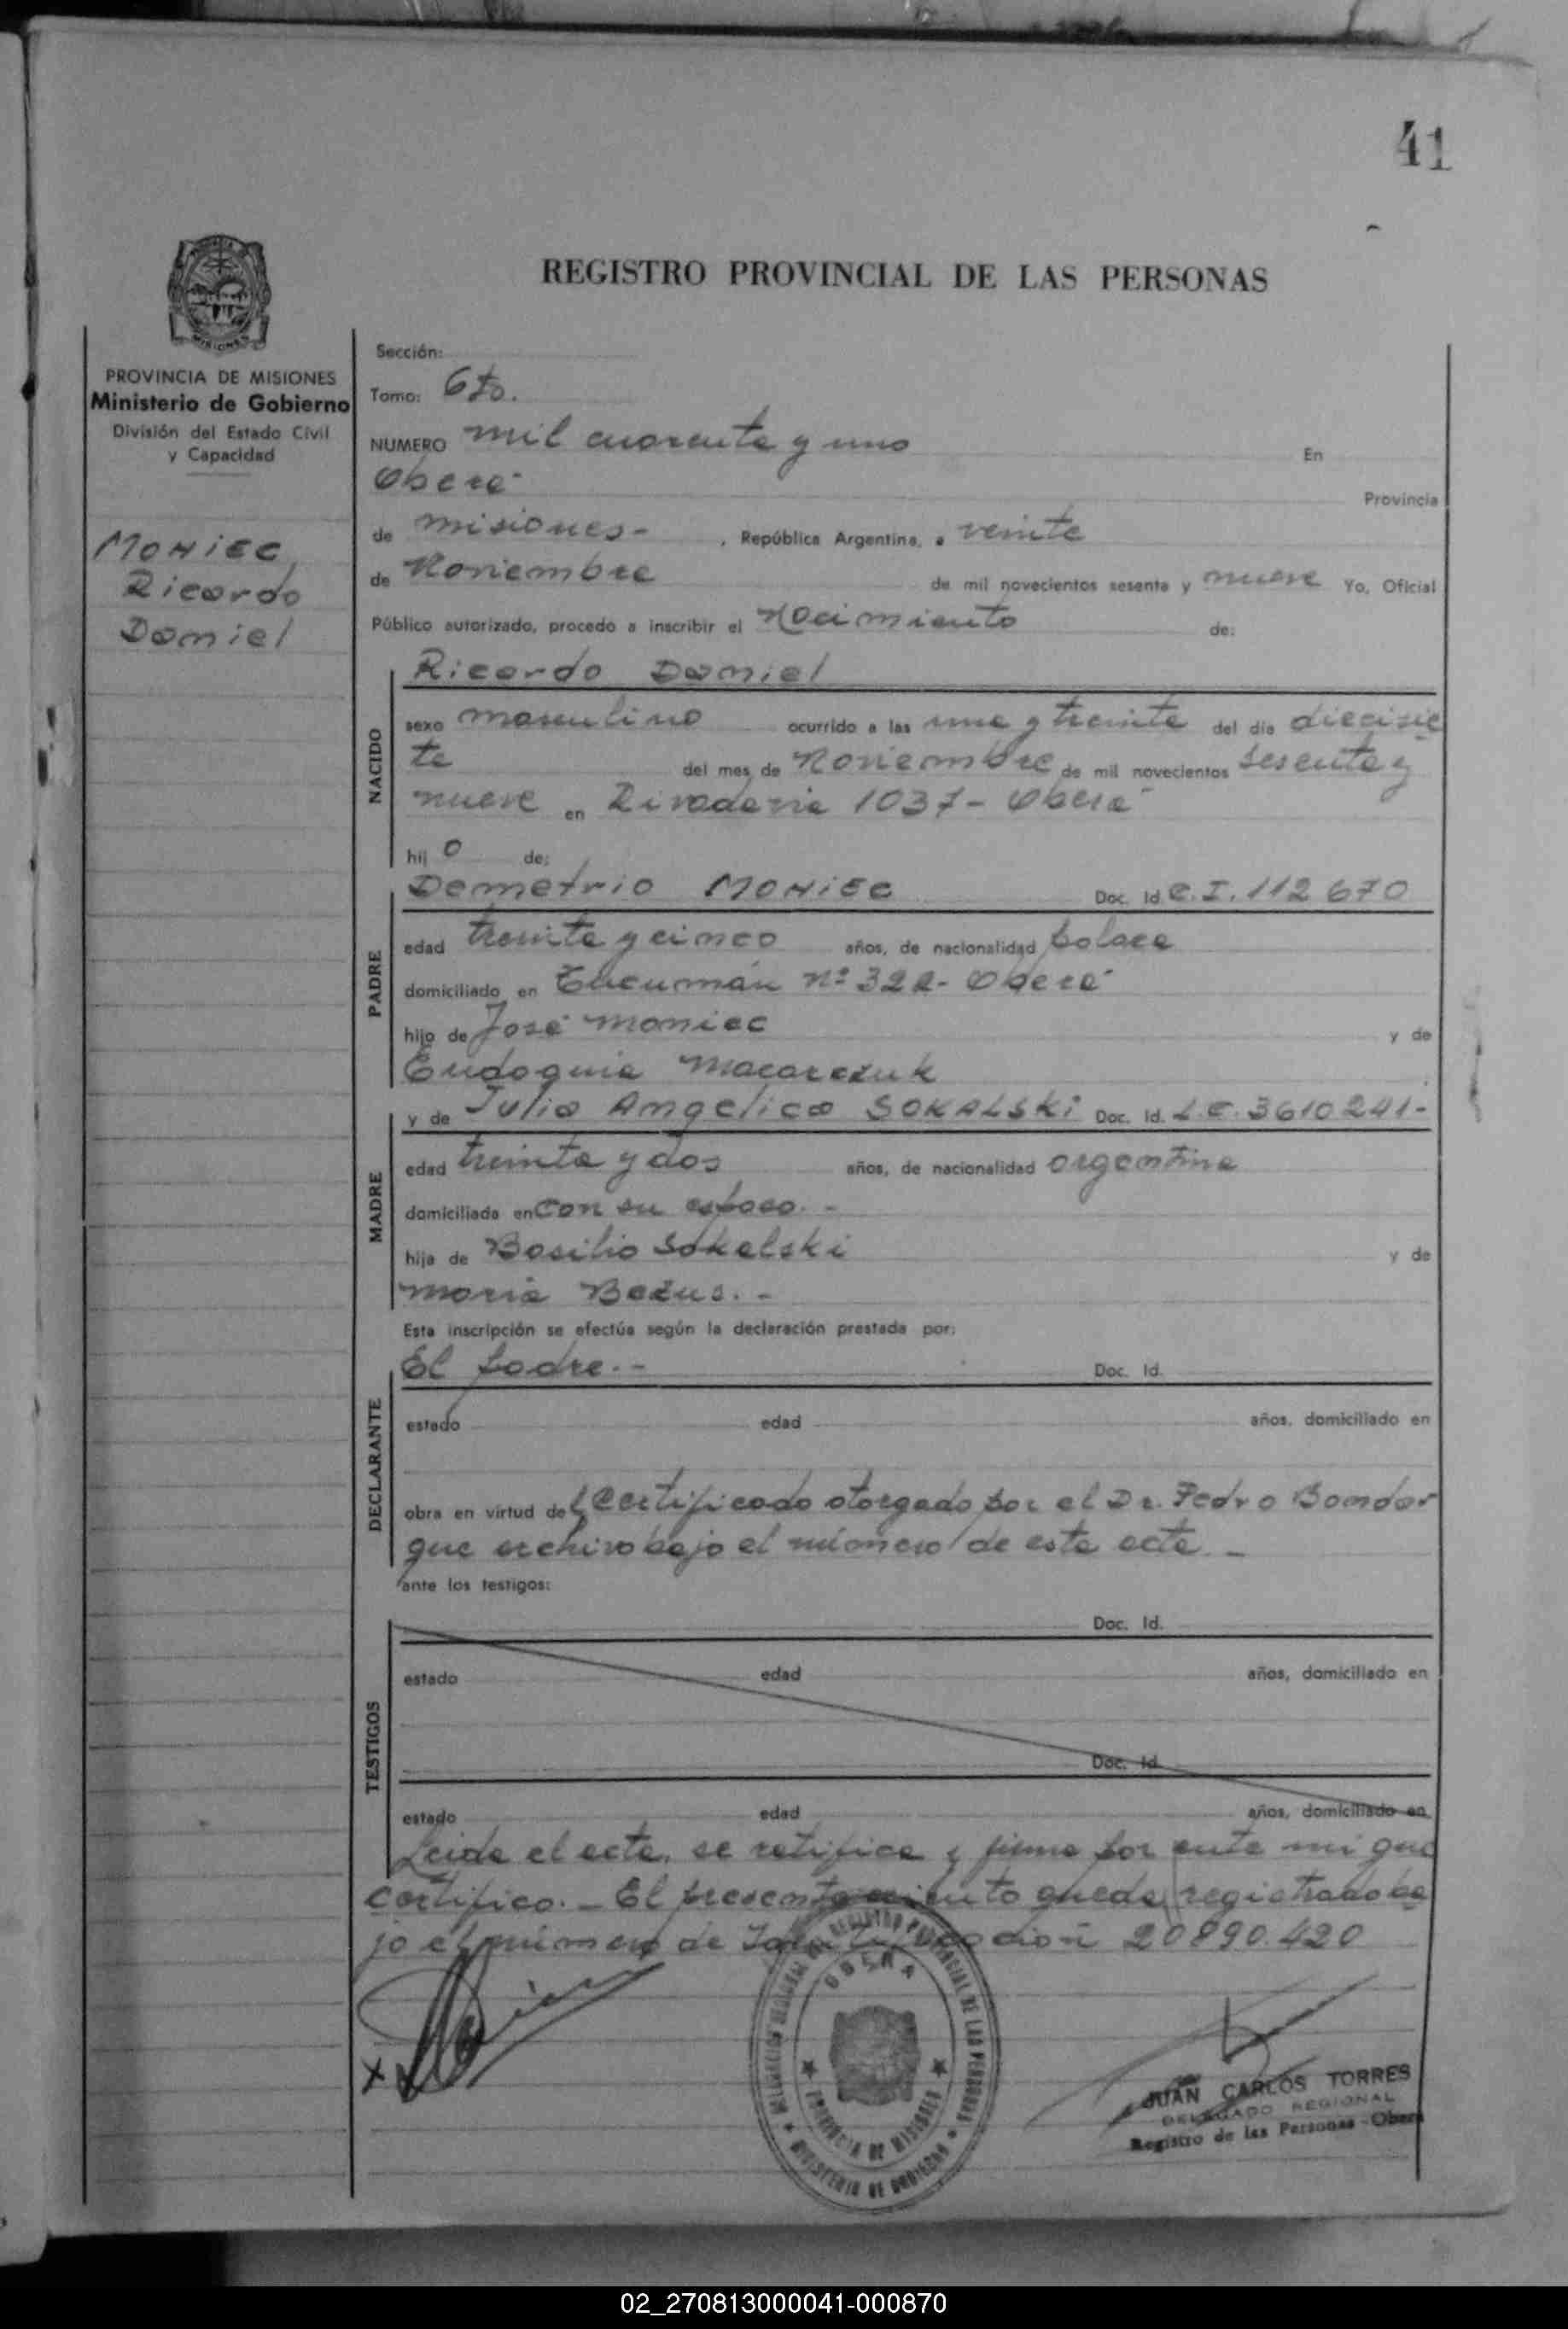 41
REGISTRO PROVINCIAL DE LAS PERSONAS
MISIONES
PROVINCIA DE MISIONES
Ministerio de Gobierno
División del Estado Civil
y Capacidad
MONIEC
Ricardo
Daniel
Sección:
Tomo: 6to.
NUMERO mil cuarenta y uno En
Oberá Provincia
de misiones- , República Argentina, a veinte
de Noviembre de mil novecientos sesenta y nueve Yo, Oficial
Público autorizado, procedo a inscribir el Nacimiento de:
Ricardo Daniel
NACIDO
sexo masculino ocurrido a las una y treinta del día diecisie
te del mes de Noviembre de mil novecientos sesenta y
nueve en Rivadavia 1037- Oberá
hij o de:
PADRE
Demetrio MONIEC Doc. Id. C.I. 112 670
edad treinta y cinco años, de nacionalidad polaca
domiciliado en Tucumán nº 322- Oberá
hijo de José Moniec y de
Eudoquia Macarczuk
MADRE
y de Julia Angélica SOKALSKi Doc. Id. L.C. 3610241-
edad treinta y dos años, de nacionalidad argentina
domiciliada en con su esposo. -
hija de Basilio Sokalski y de
María Bezus. -
Esta inscripción se efectúa según la declaración prestada por:
DECLARANTE
El padre.- Doc. Id.
estado edad años, domiciliado en
obra en virtud del Certificado otorgado por el Dr. Pedro Bondar
que archivo bajo el número de esta acta -
ante los testigos:
TESTIGOS
Doc. Id.
estado edad años, domiciliado en
Doc. Id.
estado edad años, domiciliado en
Leida el acta, se ratifica y firma por ante mi que
certifico.- El presente queda registrado ba
jo el número de Identificación 20890.420
DELEGACION REGIONAL DEL REGISTRO PROVINCIAL DE LAS PERSONAS
OBERA
PROVINCIA DE MISIONES
MINISTERIO DE GOBIERNO
JUAN CARLOS TORRES
DELEGADO REGIONAL
Registro de las Personas - Oberá
02_270813000041-000870